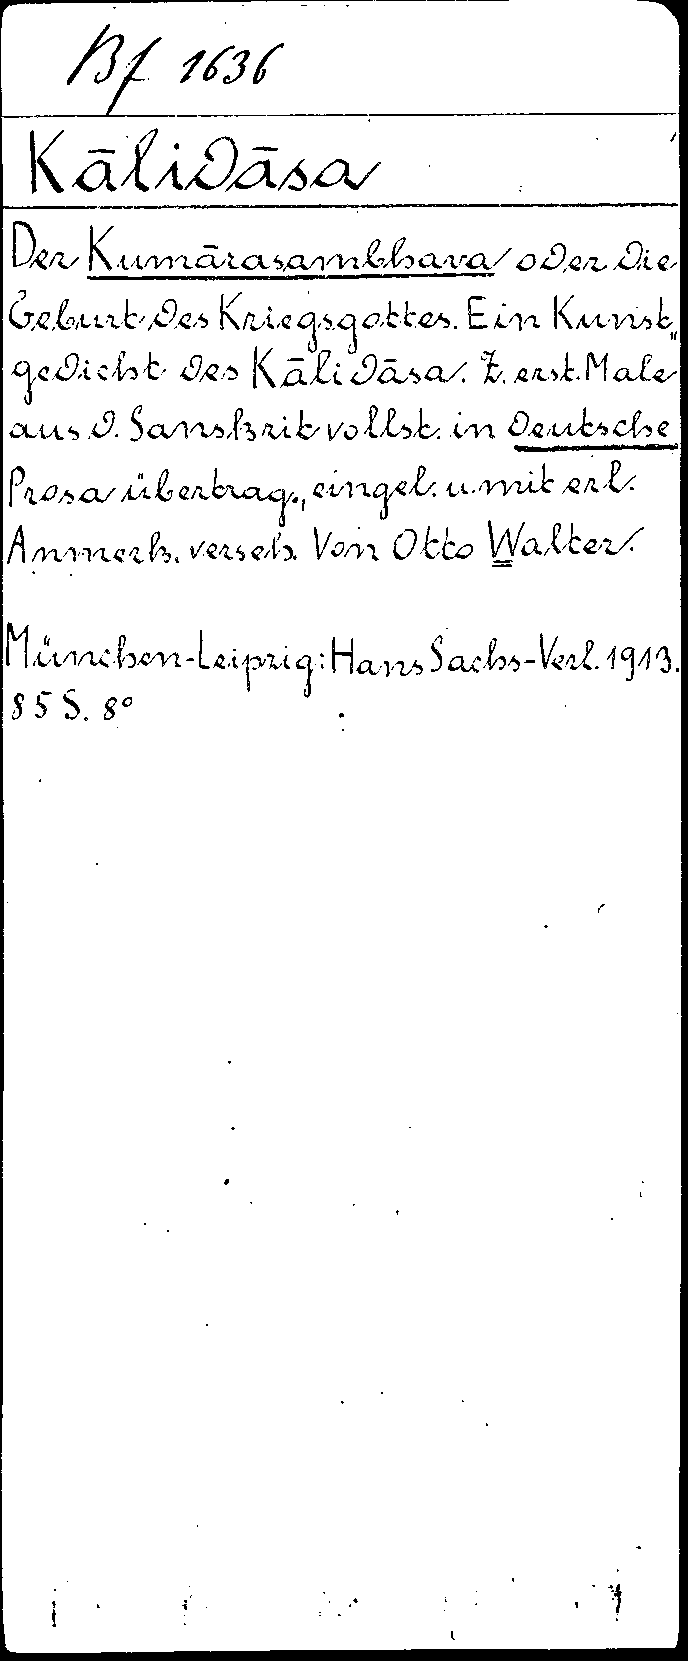 Bf 1636
Kālidāsa
Der Kumārasambhava oder die
Geburt des Kriegsgottes. Ein Kunst„
gedicht des Kālidāsa. Z. erst. Male
aus d. Sanskrit vollst. in deutsche
Prosa übertrag., eingel. u. mit erl.
Anmerk. verseh. Von Otto Walter.
München-Leipzig: Hans Sachs-Verl. 1913.
85 S. 8°